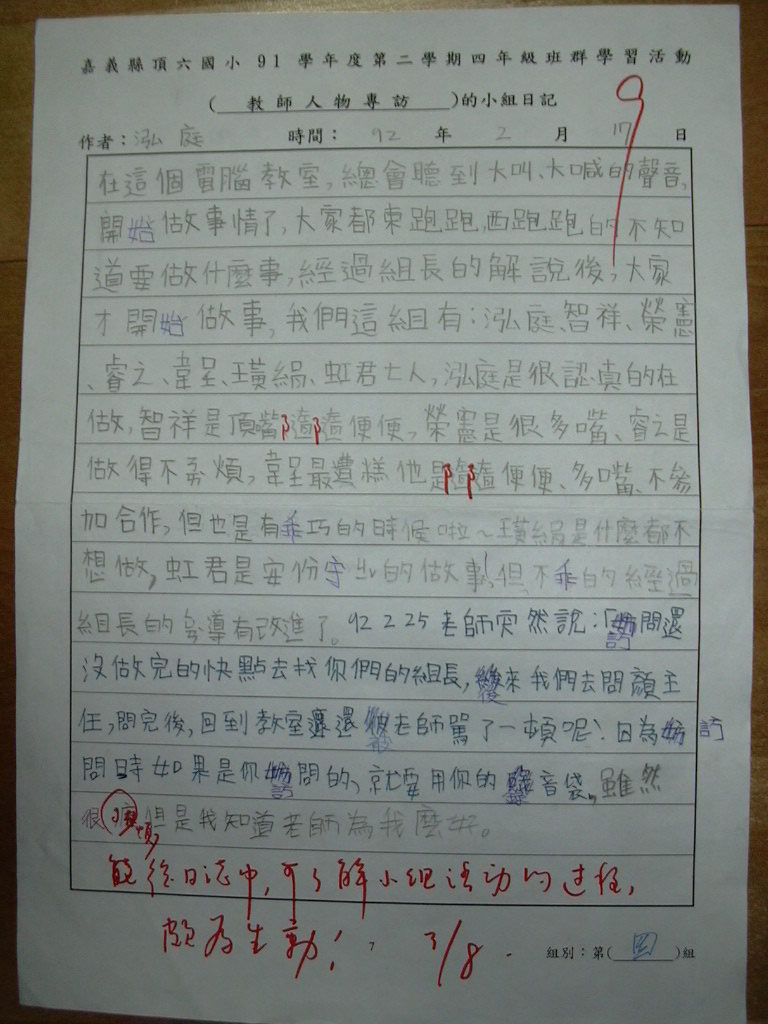 嘉義縣頂六國小 91 學年度第二學期四年級班群學習活動
( 教師人物專訪 )的小組日記
作者：泓庭 時間： 92 年 2 月 17 日
在這個電腦教室,總會聽到大叫、大喊的聲音,
開始做事情了,大家都東跑跑,西跑跑的不知
道要做什麼事,經過組長的解說後,大家
才開始做事,我們這組有:泓庭、智祥、榮憲
、睿之、韋呈、璜絹、虹君七人,泓庭是很認真的在
做,智祥是頂嘴隨隨便便,榮憲是很多嘴、睿之是
做得不耐煩,韋呈最糟糕他是隨隨便便、多嘴、不參
加合作,但也是有乖巧的時候啦~璜絹是什麼都不
想做,虹君是安份守 的做事,但不乖的經過
組長的 導有改進了。92 2 25 老師突然說:「訪問還
沒做完的快點去找你們的組長,後來我們去問顏主
任,問完後,回到教室還被老師罵了一頓呢!因為訪
問時如果是你訪問的、就要用你的 音 雖然
很 煩但是我知道老師為我 好。
從日誌中,可了解小組活動的過程,
頗為生動! 3/8.
7
組別：第( 四 )組